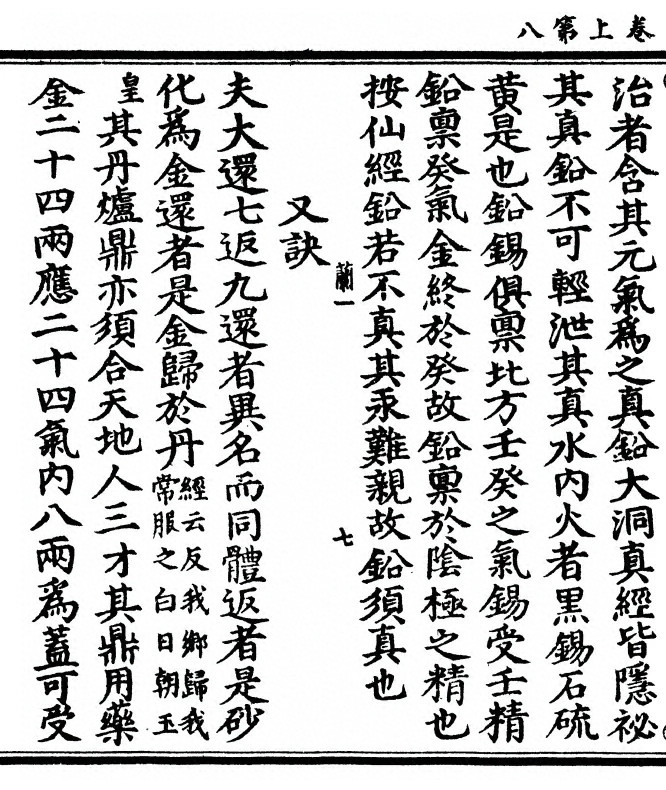 卷上第八
治者含其元氣爲之真鉛大洞真經皆隱祕
其真鉛不可輕泄其真水内火者黑錫石硫
黄是也鉛錫俱禀北方壬癸之氣錫受壬精
鉛禀癸氣金終於癸故鉛禀於陰極之精也
按仙經鉛若不真其汞難親故鉛須真也
蘭一
七
又訣
夫大還七返九還者異名而同體返者是砂
化爲金還者是金歸於丹經云反我鄉歸我
常服之白日朝玉
皇其丹爐鼎亦須合天地人三才其鼎用藥
金二十四兩應二十四氣内八兩爲蓋可受